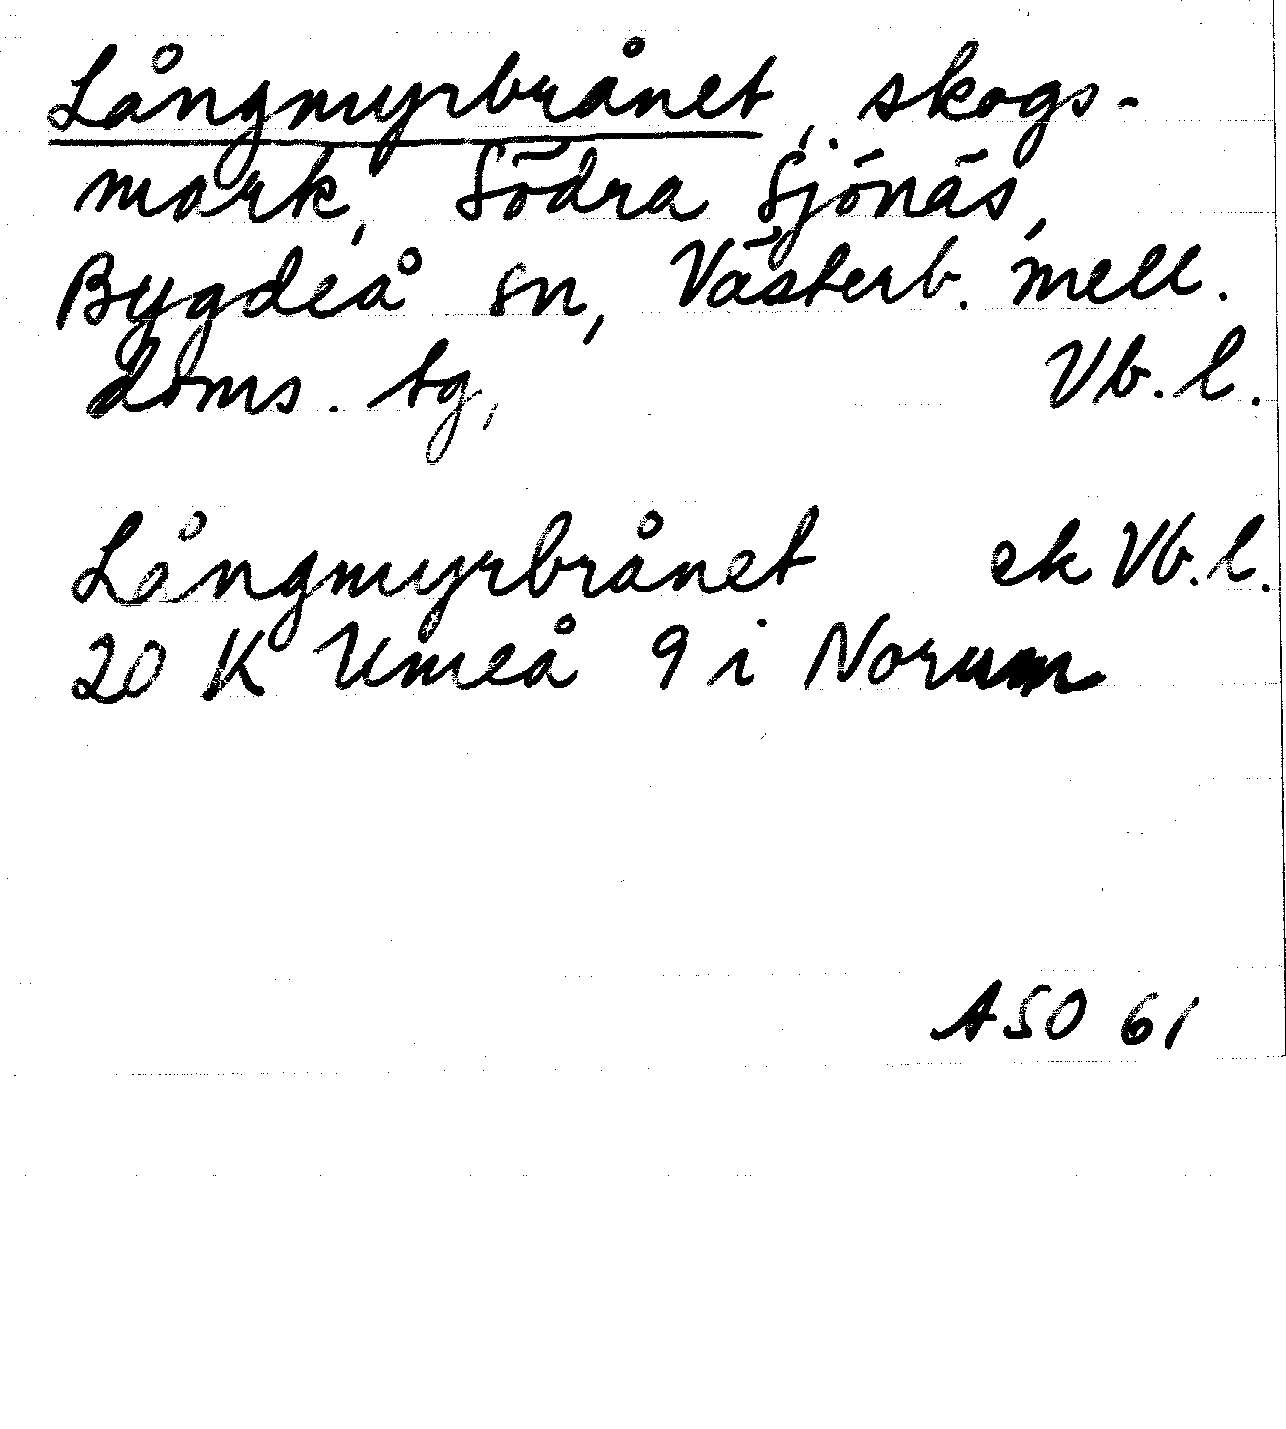 Långmyrbrånet, skogs-
mark, Södra Sjönäs,
Bygdeå sn, Västerb. mell.
doms. tg, Vb. l.
Långmyrbrånet ek Vb. l.
20 K Umeå 9 i Norum
ASO 61